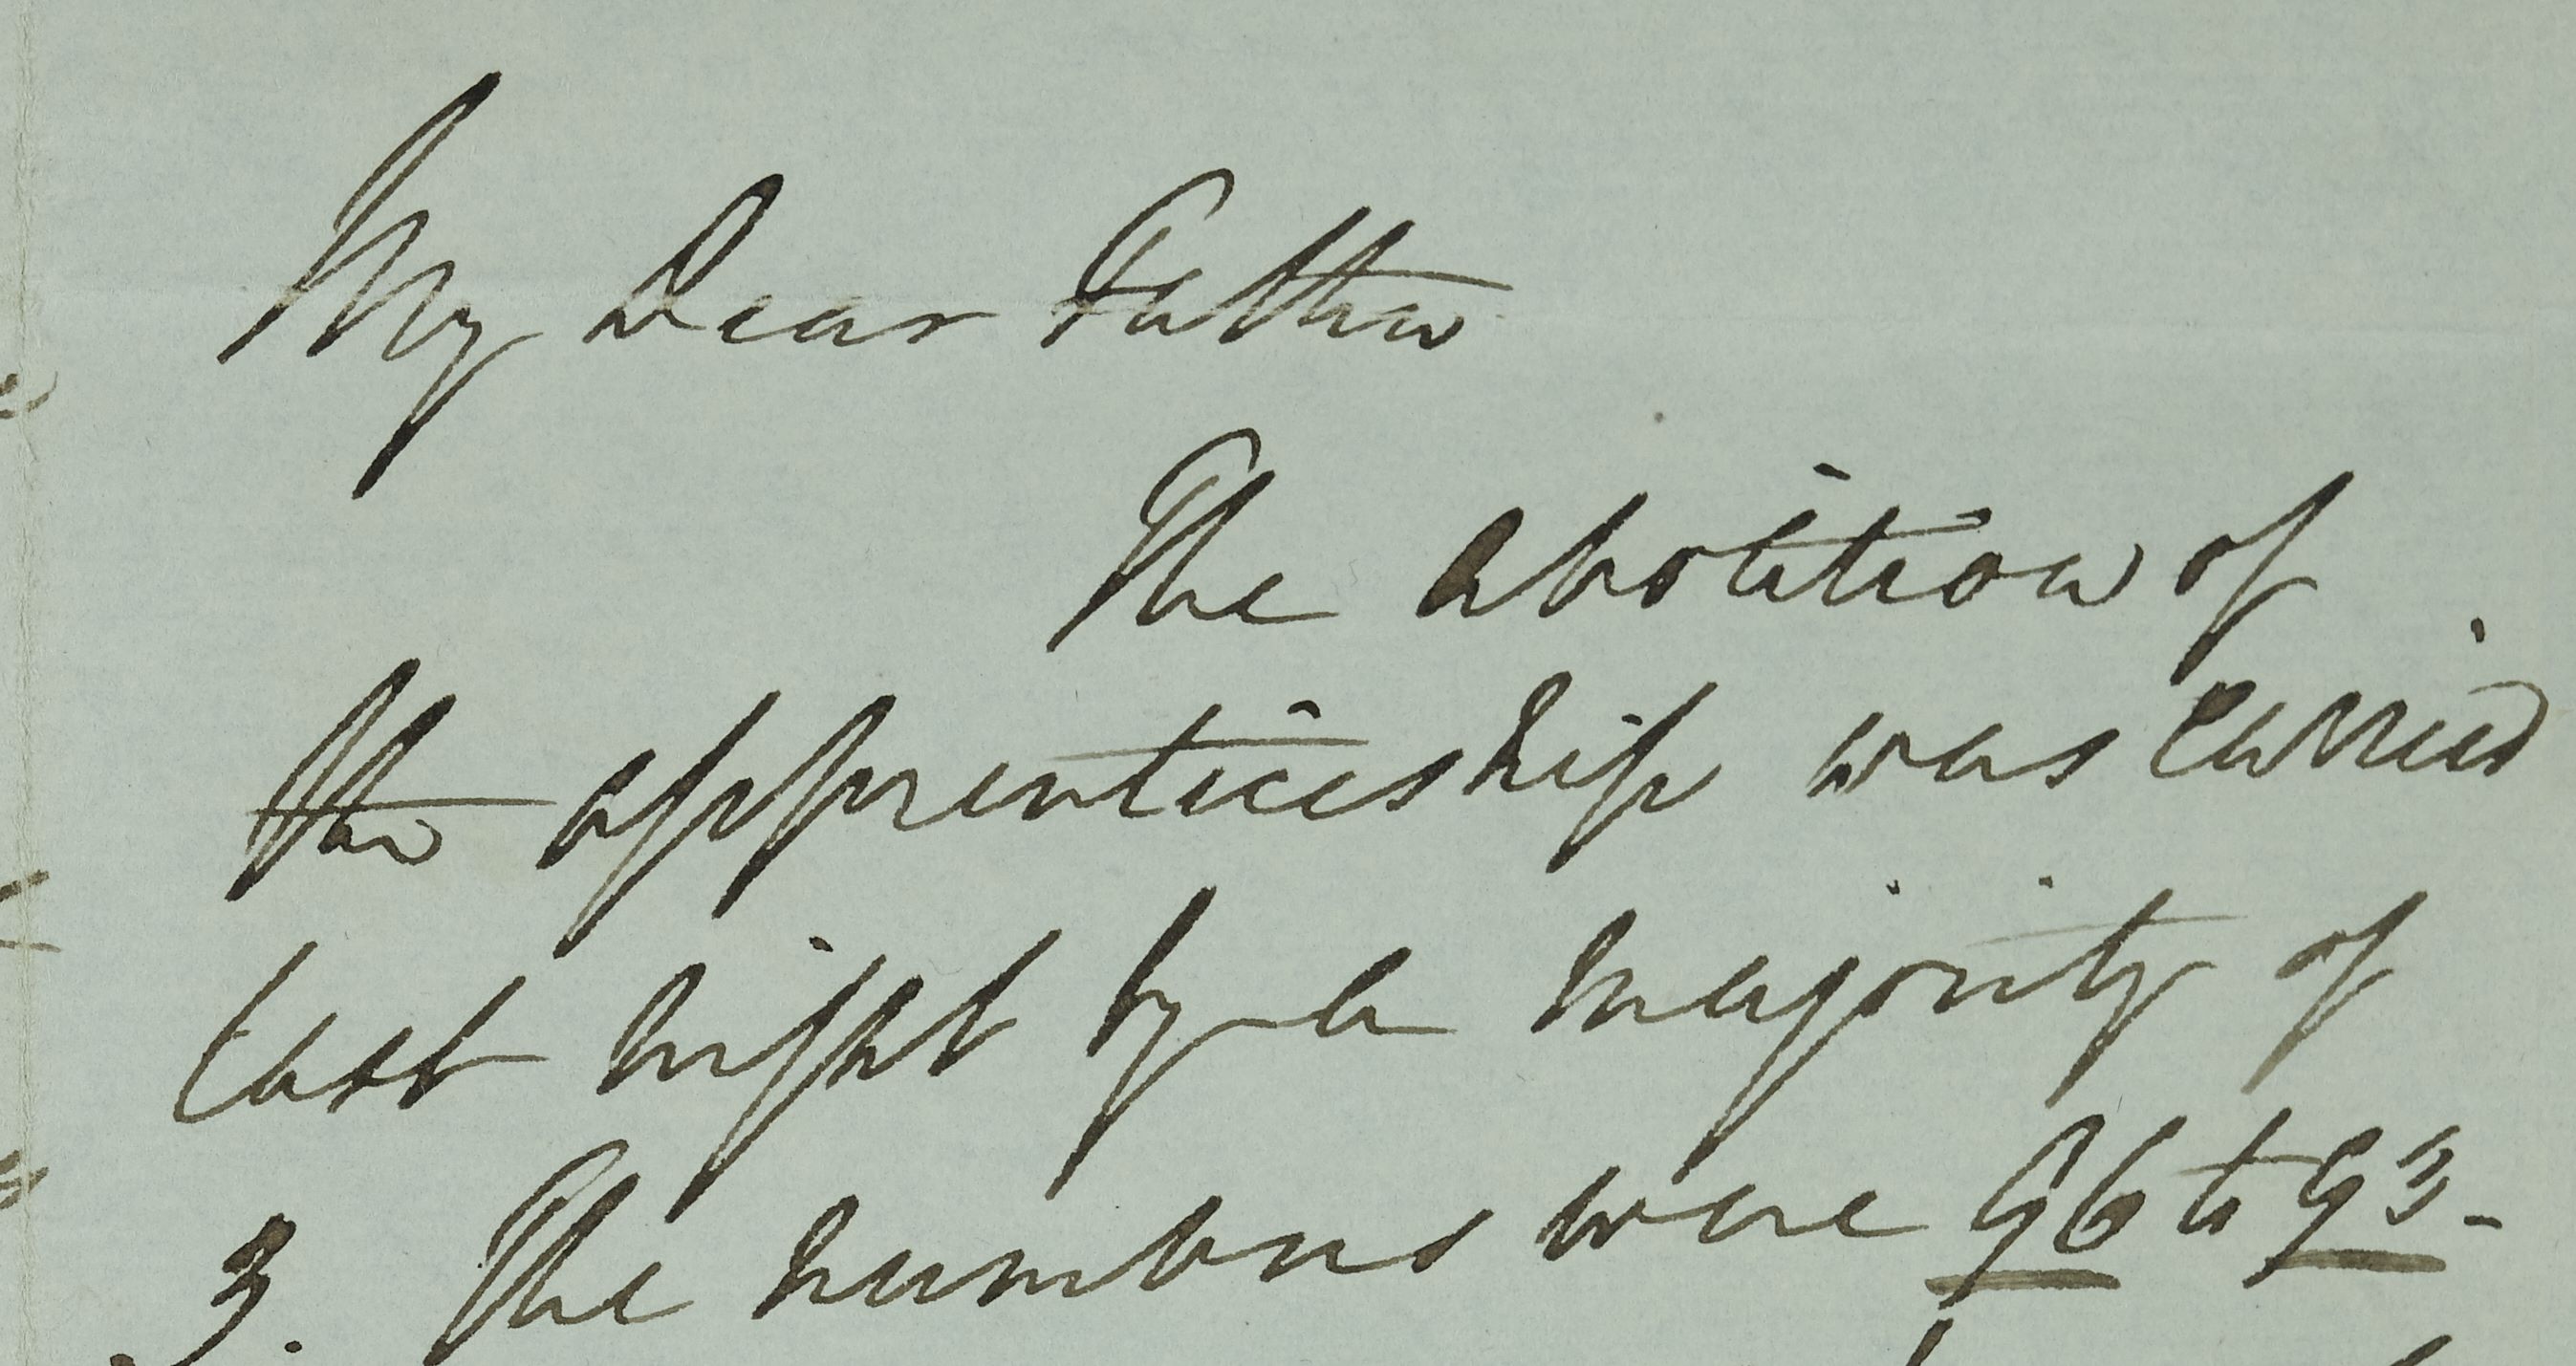 My Dear Father
The abolition of
the apprenticeship was carried
last night by a majority of
3. The numbers were 96 to 93-